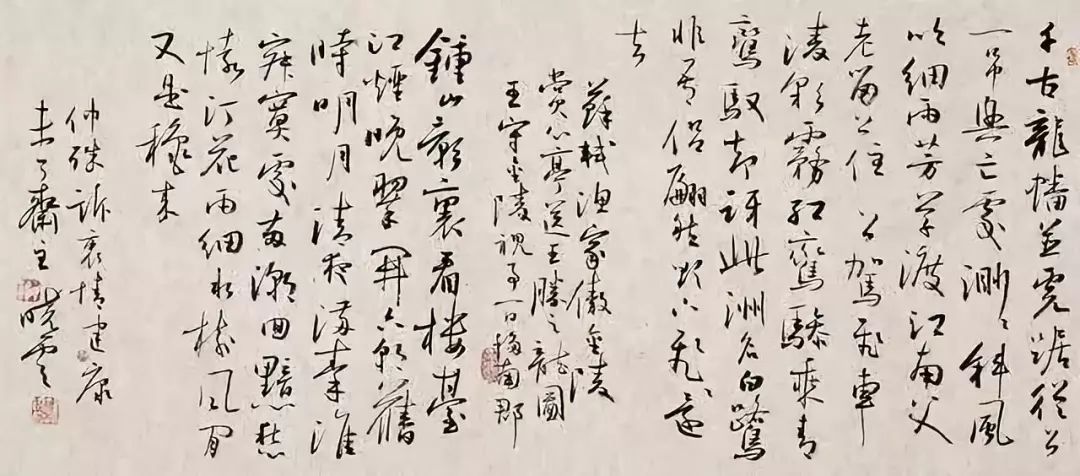 千古龍幡並虎踞從公
一吊興亡處渺〻斜風
吹細雨芳草渡江南父
老留公住 公駕飛車
凌彩霧紅鸞驂乘青
鸞馭却訝此洲名白鷺
非吾侣翩然欲下飛還
去
蘇軾漁家傲金陵
賞心亭送王勝之龍圖
王守金陵視事一日移南郡
鍾山影裏看樓臺
江煙晚翠開六朝舊
時明月清夜滿秦淮
寂寞處兩潮回黯愁
懷汀花雨細水樹風閒
又是穐來
仲殊訴衷情建康
未了齋主曉雲